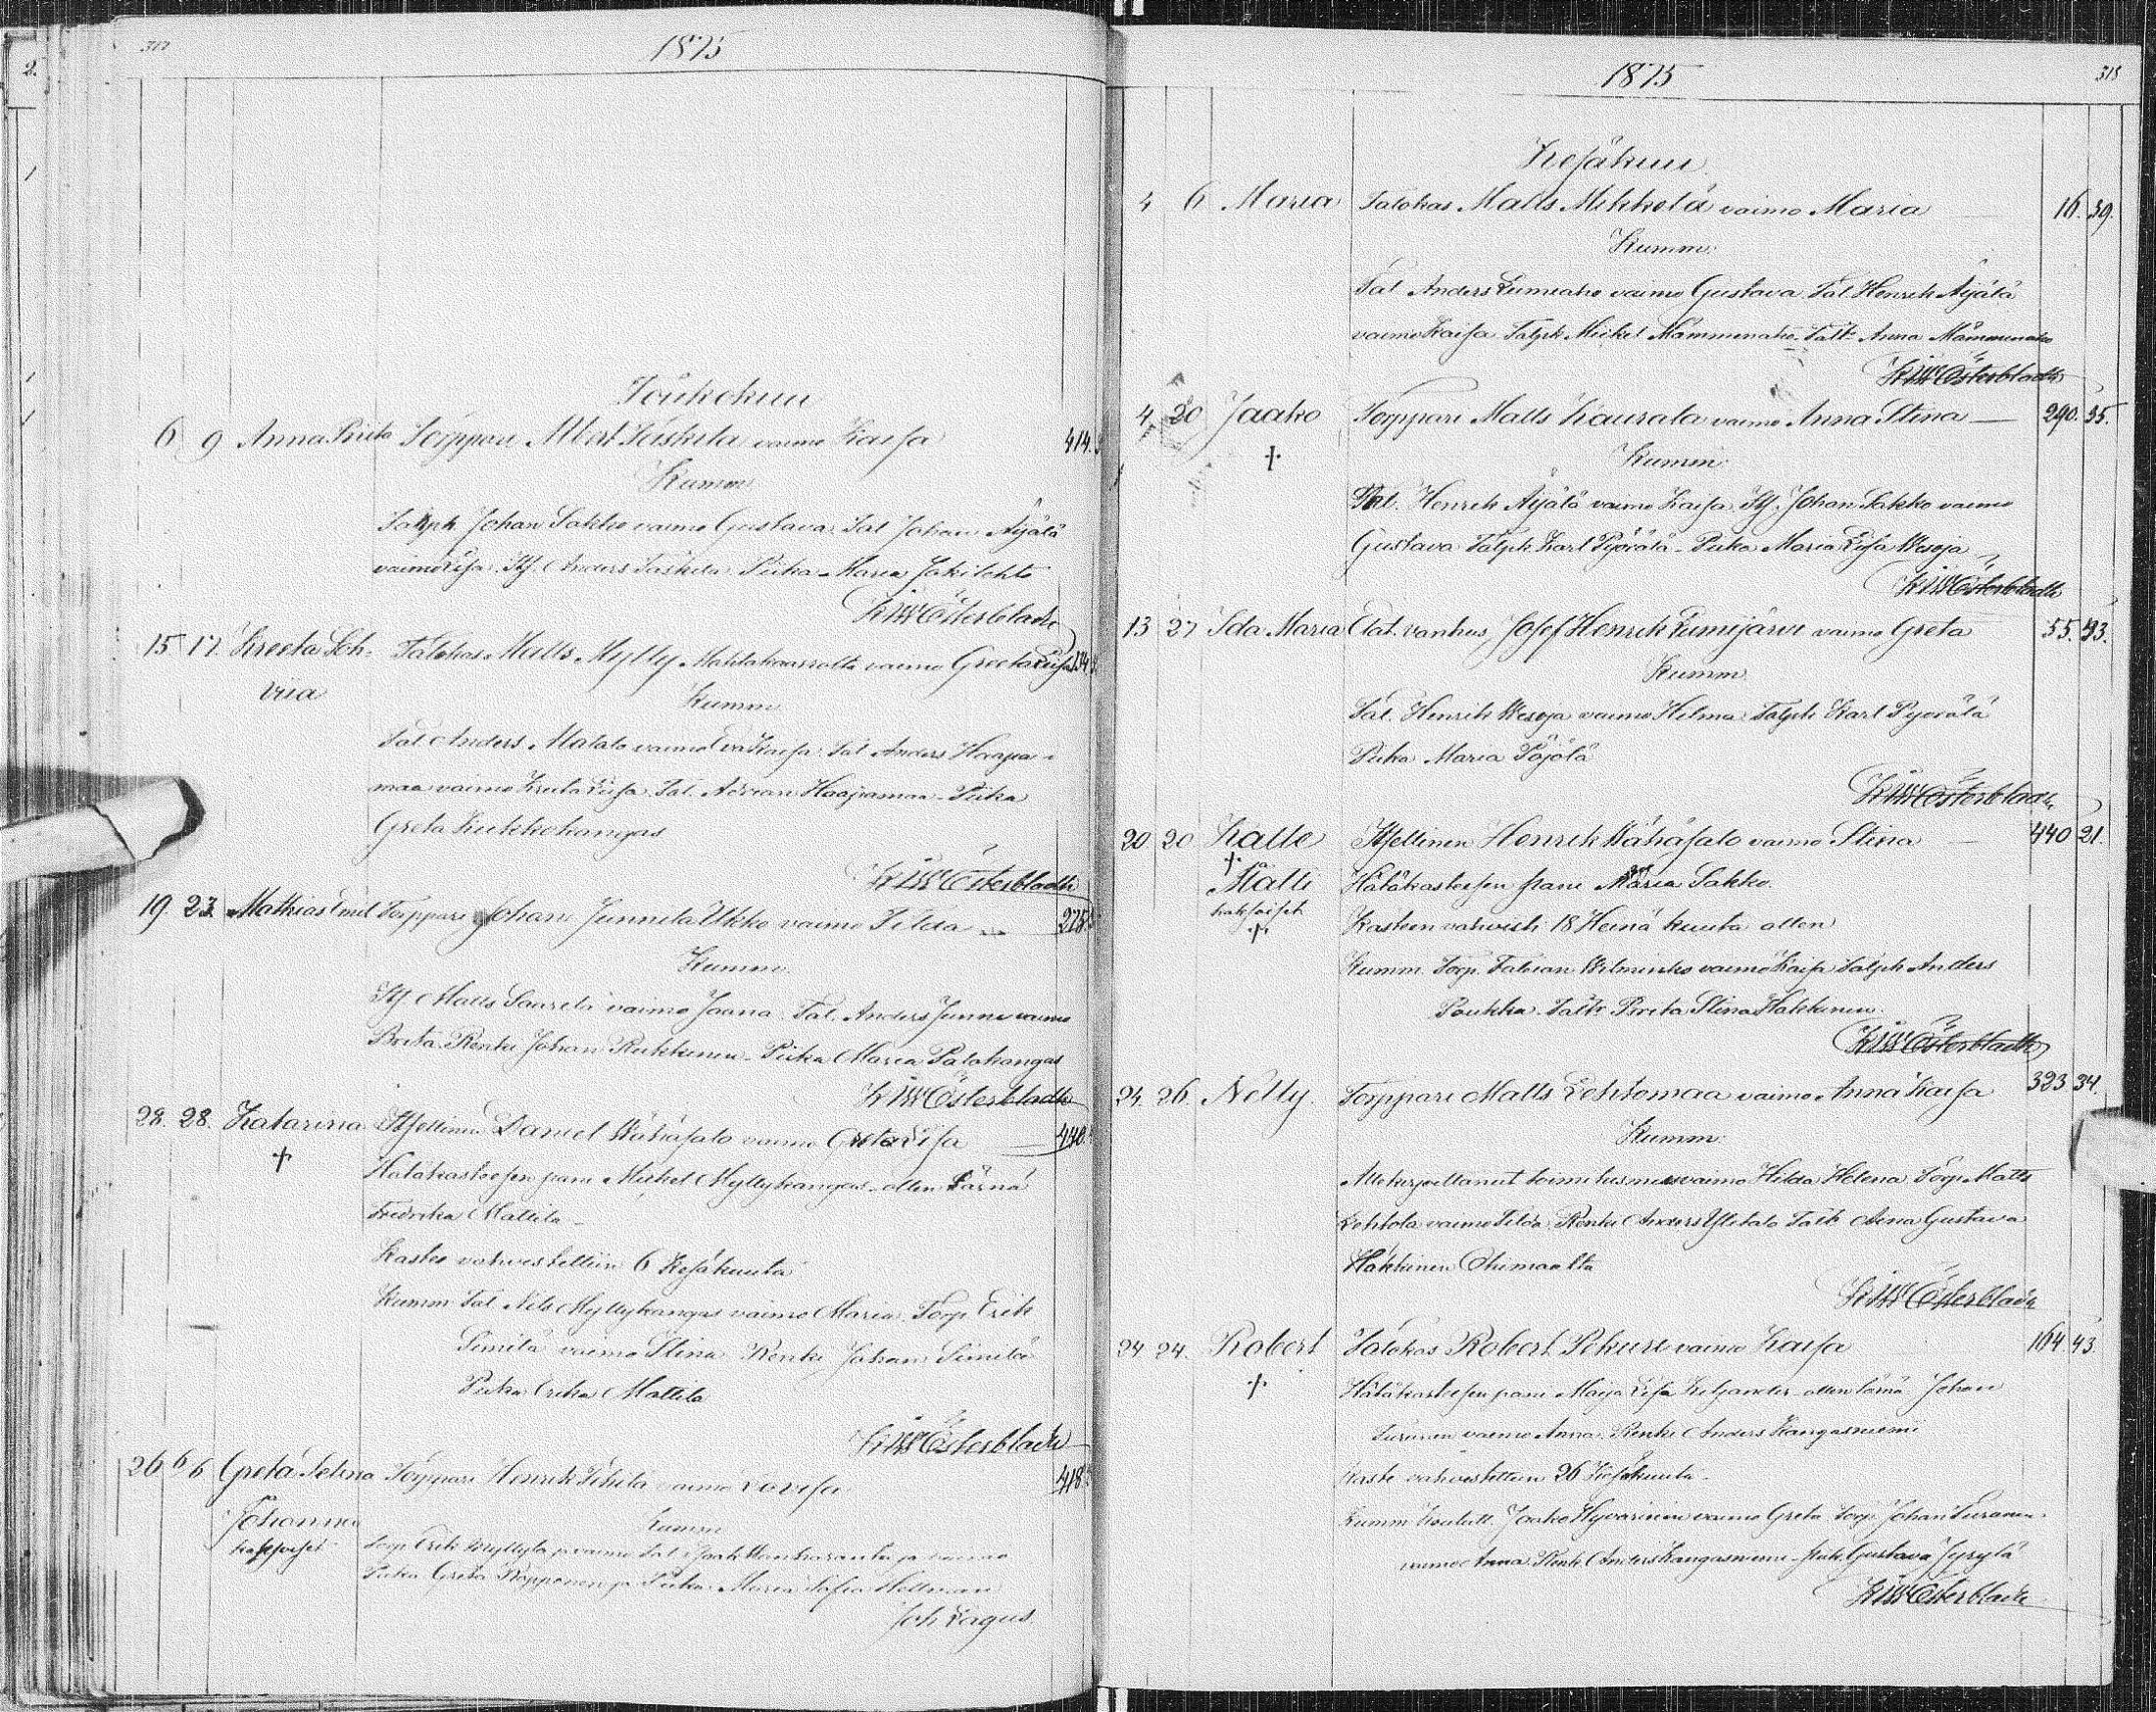 317
1875
Toukokuu
6 9 Anna Priita Torppari Albert Taskila vaimo Kaisa 414.
Kumm
Talpk Johan Sakko vaimo Gustava. Tal Johan Äijälä
vaimo Liisa. Itl. Anders Taskila Piika Maria Jokilehto
K W Österbladh
15 17 Kreeta Sch- Talokas Matts Mylly Mahlakaarrolta vaimo Greeta Liisa 134
viia
Kumm
Tal Anders Matala vaimo Eva Kaisa. Tal Anders Haapa-
maa vaimo Kreeta Liisa Tal. Adrian Haapamaa - Piika
Greta Kukkokangas
K W Österbladh
19. 23. Mathias Emil Torppari Johan Junnila Ukko vaimo Tilda 225.
Kumm
Itl Matts Saarela vaimo Jaana. Tal. Anders Junna vaimo
Brita. Renki Johan Rukkinen - Piika Maria Palokangas
K W Österbladh
28. 28. Katarina Itsellinen Daniel Wähäsalo vaimo Greta Lisa 440
Hätäkasteesen pani Mickel Myllykangas - ollen Läsnä
Fredrika Mattila -
Kaste vahvistettiin 6 Kesäkuuta
Kumm Tal Nils Myllykangas vaimo Maria. Torp Erik
Similä vaimo Stina Renki Johan Similä
Piika Erika Mattila
K W Österbladh
26 6/6 Greta Selina Torppari Henrik Pihila vaimo Lovisa 418.
Johanna
kaksoiset
Kumm
Torp Erik Myllylä ja vaimo Tal Isaak ja vaimo
Piika Greta Kopponen ja Piika Maria Sofia Hellman
Joh Lagus.
1875
318
Kesäkuu
4 6 Maria Talokas Matts Mikkola vaimo Maria 16. 39.
Kumm.
Tal Anders Lumiaho vaimo Gustava Tal Henrik Äijälä
vaimo Kaisa Talpk Mickel Mämmenaho Talt. Anna Mämmenaho
K W Österbladh
4 20 Jaako Torppari Matts Kaurala vaimo Anna Stina 290. 35.
Kumm
Tal. Henrik Äijälä vaimo Kaisa. Itl. Johan Sakko vaimo
Gustava Talpk Karl Pyörälä - Piika Maria Lisa Wesoja
K W Österbladh
13 27 Ida Maria vanhus Josef Henrik Lumijärvi vaimo Greta 55. 43.
Kumm
Tal. Henrik Wesoja vaimo Helma Talpk Karl Pyörälä
Piika Maria Pöjölä
K W Österbladh
20 20 Kalle Itsellinen Henrik Wähäsalo vaimo Stina 440 21.
Matti Hätäkasteesen pani Maria Sakko.
kaksoiset Kasteen vahvisti 18 Heinä kuuta ollen
Kumm Torp. Fabian Wilminko vaimo Kaisa Talpk Anders
Poukka - Talt Priita Stina Hakkinen.
K W Österbladh
24. 26. Nelly Torppari Matts Lehtomaa vaimo Anna Kaisa 323 34.
Kumm
Allekirjoittanut toimitusmies vaimo Hilda Helena Torp Matts
Lehtola vaimo Tilda Renki Anders Ylitalo Talt Anna Gustava
Häkkinen Ohimaalta
K W Österbladh
24 24. Robert Talokas Robert Pekuri vaimo Kaisa 164. 43
Hätäkasteesen pani Maija Lisa Kiljander - ollen läsnä Johan
Turunen vaimo Anna Renki Anders Kangasniemi
Kaste vahvistettiin 26 Kesäkuuta.
Kumm Jaako Hyvärinen vaimo Greta Torp Johan Turunen
vaimo Anna Renki Anders Kangasniemi - Gustava Jyrylä
K W Österbladh